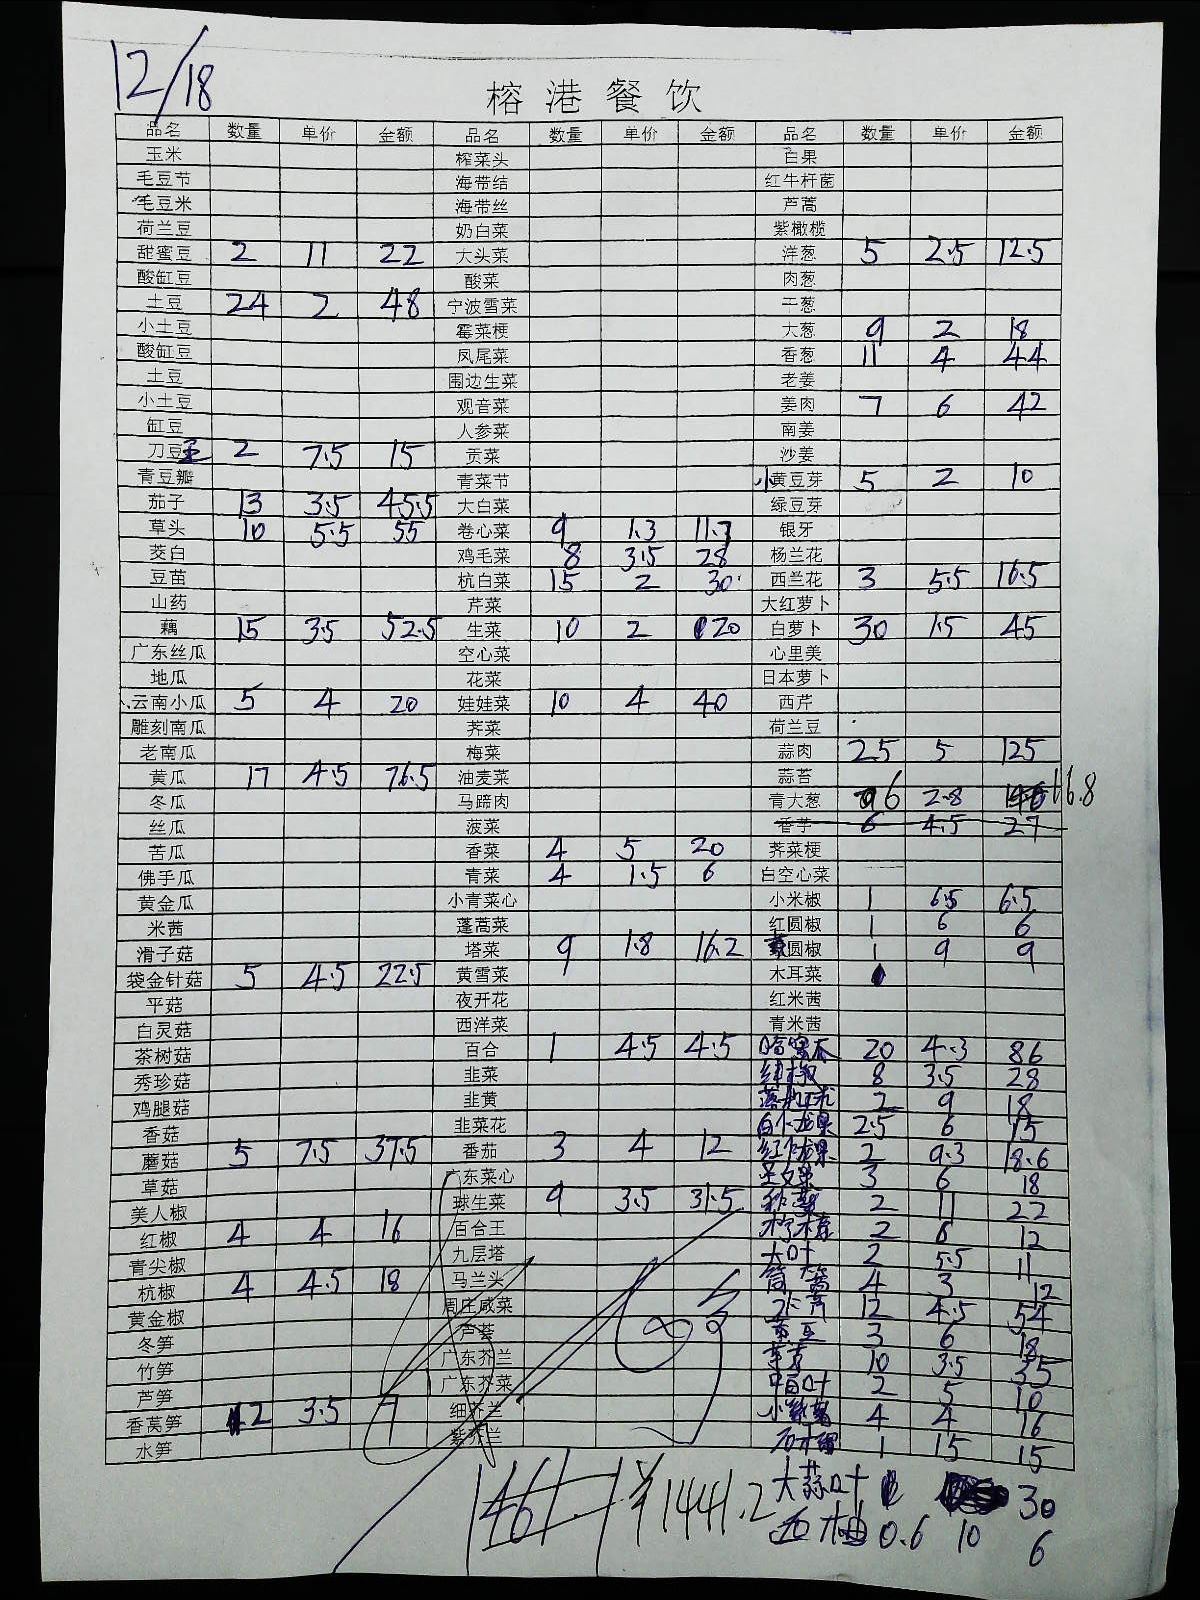 12/18
榕港餐饮
品名 数量 单价 金额 品名 数量 单价 金额 品名 数量 单价 金额
玉米 榨菜头 白果
毛豆节 海带结 红牛杆菌
毛豆米 海带丝 芦蒿
荷兰豆 奶白菜 紫橄榄
甜蜜豆 2 11 22 大头菜 洋葱 5 2.5 12.5
酸缸豆 酸菜 肉葱
土豆 24 2 48 宁波雪菜 干葱
小土豆 霉菜梗 大葱 9 2 18
酸缸豆 凤尾菜 香葱 11 4 44
土豆 围边生菜 老姜
小土豆 观音菜 姜肉 7 6 42
缸豆 人参菜 南姜
刀豆 2 7.5 15 贡菜 沙姜
青豆瓣 青菜节 小黄豆芽 5 2 10
茄子 13 3.5 45.5 大白菜 绿豆芽
草头 10 5.5 55 卷心菜 9 1.3 11.7 银牙
茭白 鸡毛菜 8 3.5 28 杨兰花
豆苗 杭白菜 15 2 30 西兰花 3 5.5 16.5
山药 芹菜 大红萝卜
藕 15 3.5 52.5 生菜 10 2 20 白萝卜 30 1.5 45
广东丝瓜 空心菜 心里美
地瓜 花菜 日本萝卜
云南小瓜 5 4 20 娃娃菜 10 4 40 西芹
雕刻南瓜 荠菜 荷兰豆
老南瓜 梅菜 蒜肉 25 5 125
黄瓜 17 4.5 76.5 油麦菜 蒜苔
冬瓜 马蹄肉 青大葱 6 2.8 16.8
丝瓜 菠菜 香芋 6 4.5 27
苦瓜 香菜 4 5 20 荠菜梗
佛手瓜 青菜 4 1.5 6 白空心菜
黄金瓜 小青菜心 小米椒 1 6.5 6.5
米茜 蓬蒿菜 红圆椒 1 6 6
滑子菇 塔菜 9 1.8 16.2 圆椒 1 9 9
袋金针菇 5 4.5 22.5 黄雪菜 木耳菜
平菇 夜开花 红米茜
白灵菇 西洋菜 青米茜
茶树菇 百合 1 4.5 4.5 哈密瓜 20 4.3 86
秀珍菇 韭菜 8 3.5 28
鸡腿菇 韭黄 2 9 18
香菇 韭菜花 白火龙果 2.5 6 15
蘑菇 5 7.5 37.5 番茄 3 4 12 红火龙果 2 9.3 18.6
草菇 广东菜心 圣女果 3 6 18
美人椒 球生菜 9 3.5 31.5 2 11 22
红椒 4 4 16 百合王 柠檬 2 6 12
青尖椒 九层塔 大叶 2 5.5 11
杭椒 4 4.5 18 马兰头 茼蒿 4 3 12
黄金椒 周庄咸菜 12 4.5 54
冬笋 芦荟 3 6 18
竹笋 广东芥兰 10 3.5 35
芦笋 广东芥菜 2 5 10
香莴笋 2 3.5 7 细芥兰 4 4 16
水笋 紫芥兰 石榴 1 15 15
¥1441.2 大蒜叶 30
西柚 0.6 10 6